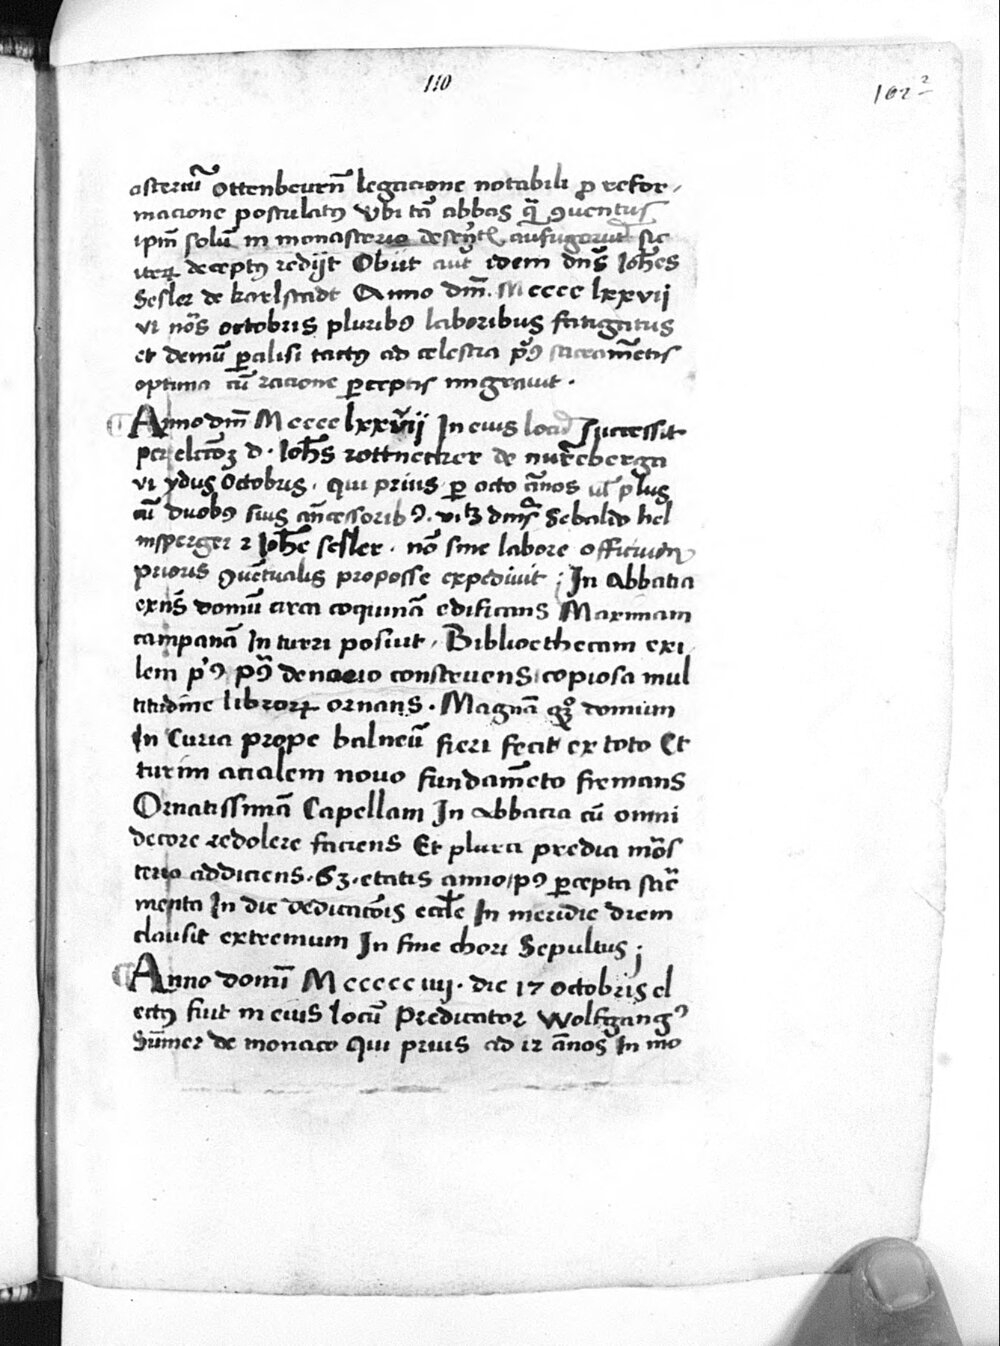 110
102 2
asteriū Ottenbeurn̄ legacione notabili ꝑ refor
macione postulatꝰ vbi tn̄ abbas ꝙ̄ ꝯuentus
ip̄m solū in monasterio aufugerūt sic
iteꝝ deceptꝰ redijt Obiit aut̄ idem dn̄s Joh̄es
Sesler de karlstadt Anno dn̄i. Mcccc lxxvij
vi no͞s octobris pluribꝰ laboribus fatigatus
et demū ꝑalisi tactꝰ ad celestia pꝰ sacram̄etis
optima cū racione ꝑceptis migrauit .
Anno dn̄i Mcccc lxxvij In eius locū successit
per elc̄oꝫ d. Joh̄s rottnecker de nur̄eberga
vi ydus Octobris . qui prius ꝑ octo an̄os ul̄ plus
cū duobꝰ suis an̄cessoribꝰ . vitꝫ dn̄is Sebaldo hel
insperger ⁊ Joh̄e sesler . nō sine labore officium
prioris ꝯuētualis proposse expediuit ; In Abbatia
exn̄s domū circa coquinā edificans Maximam
campanā In turri posiuit . Bibliothecam exi
lem pꝰ denario construens copiosa mul
titudine libroꝝ ornans . Magnā qꝫ domum
In Curia prope balneū fieri fecit ex toto Et
turim acialem nouo fundam̄eto firmans
Ornatissimā Capellam In Abbacia cū omni
decore redolere faciens Et plura predia mōs
terio addiciens . 63 . etatis anno pꝰ ꝑcepta sac̄
menta In die dedicac̄ois eccl̄e In meridie diem
clausit extremum In fine chori Sepultus ;
Anno domi̅ Mccccc iiij . die 17 octobris el
ectꝰ fuit in eius locū Predicator Wolfgangꝰ
Sūmer de monaco Qui prius ad 12 an̄os In mo